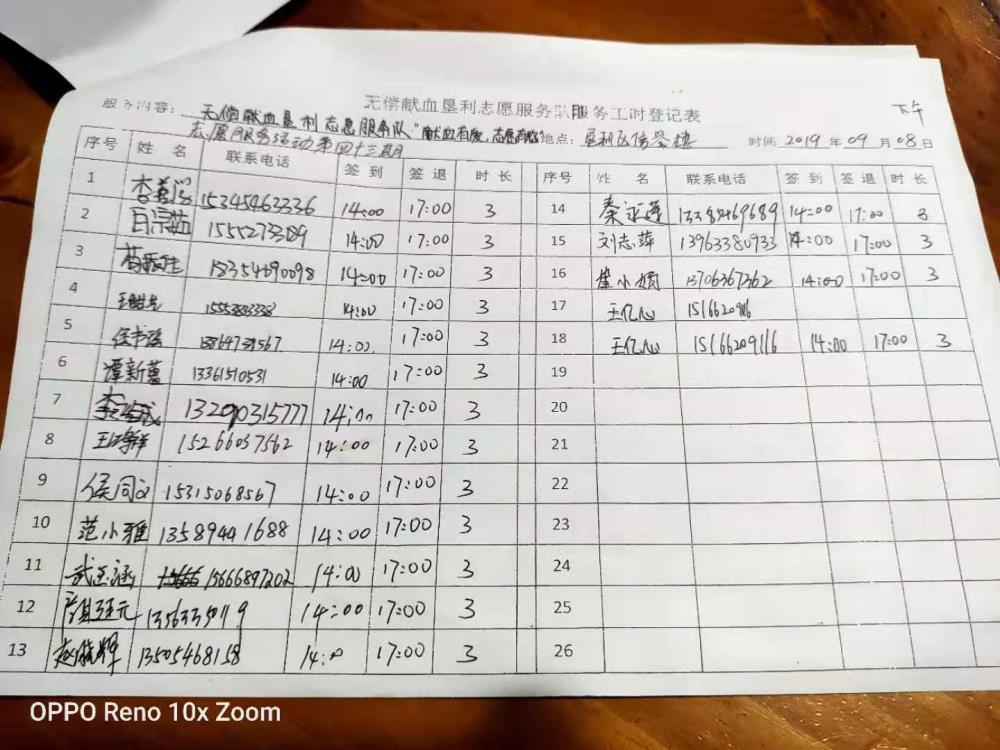 无偿献血垦利志愿服务队服务工时登记表
下午
服务内容： 无偿献血垦利志愿服务队"献血有爱，志愿有你"
志愿服务活动第四十三期 地点：垦利区信誉楼 时间 2019 年 09 月 08 日
序号 姓 名 联系电话 签 到 签 退 时 长 序号 姓 名 联系电话 签 到 签退 时 长
1 15345463336 14:00 17:00 3 14 秦永莲 14:00 17:00 3
2 14:00 17:00 3 15 刘志萍 13963380933 14:00 17:00 3
3 14:00 17:00 3 16 崔小娟 13706367362 14:00 17:00 3
4 14:00 17:00 3 17 王亿心
5 14:00 17:00 3 18 王亿心 15166209116 14:00 17:00 3
6 谭新蕾 13361510531 14:00 17:00 3 19
7 13290315777 14:00 17:00 3 20
8 15266037562 14:00 17:00 3 21
9 侯同文 15315068567 14:00 17:00 3 22
10 范小雅 13589441688 14:00 17:00 3 23
11 武玉涵 15666897202 14:00 17:00 3 24
12 14:00 17:00 3 25
13 赵晓辉 13505468158 17:00 3 26
OPPO Reno 10x Zoom